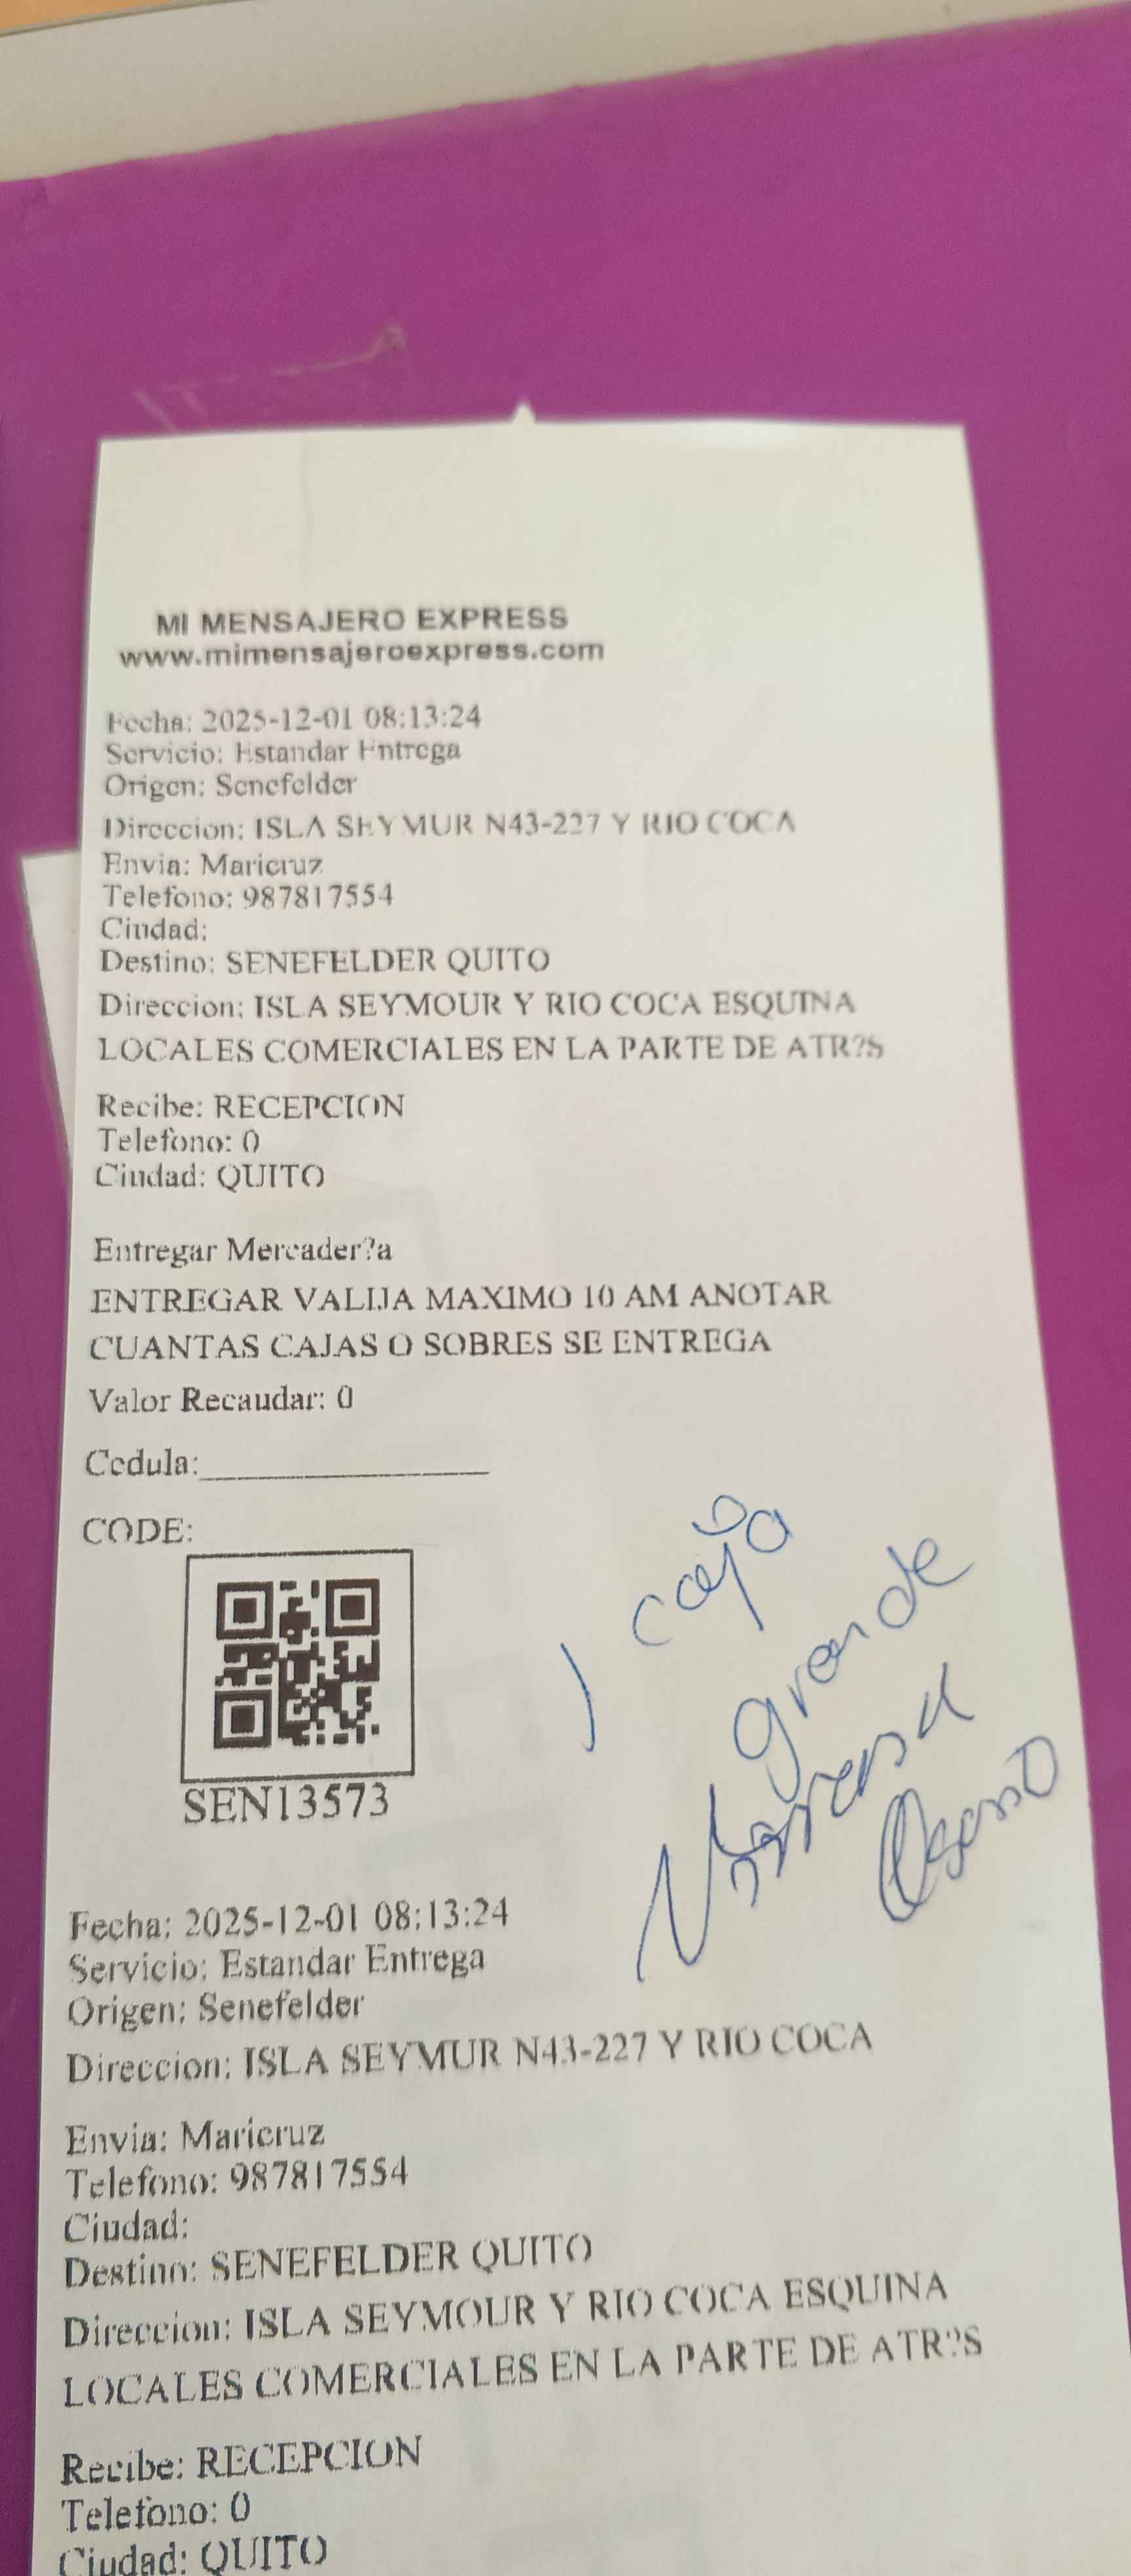 MI MENSAJERO EXPRESS
www.mimensajeroexpress.com
Fecha: 2025-12-01 08:13:24
Servicio: Estandar Entrega
Origen: Senefelder
Direccion: ISLA SEYMUR N43-227 Y RIO COCA
Envia: Maricruz
Telefono: 987817554
Ciudad:
Destino: SENEFELDER QUITO
Direccion: ISLA SEYMOUR Y RIO COCA ESQUINA
LOCALES COMERCIALES EN LA PARTE DE ATR?S
Recibe: RECEPCION
Telefono: 0
Ciudad: QUITO
Entregar Mercader?a
ENTREGAR VALIJA MAXIMO 10 AM ANOTAR
CUANTAS CAJAS O SOBRES SE ENTREGA
Valor Recaudar: 0
Cedula:
CODE:
SEN13573
1 caja
grande
Fecha: 2025-12-01 08:13:24
Servicio: Estandar Entrega
Origen: Senefelder
Direccion: ISLA SEYMUR N43-227 Y RIO COCA
Envia: Maricruz
Telefono: 987817554
Ciudad:
Destino: SENEFELDER QUITO
Direccion: ISLA SEYMOUR Y RIO COCA ESQUINA
LOCALES COMERCIALES EN LA PARTE DE ATR?S
Recibe: RECEPCION
Telefono: 0
Ciudad: QUITO